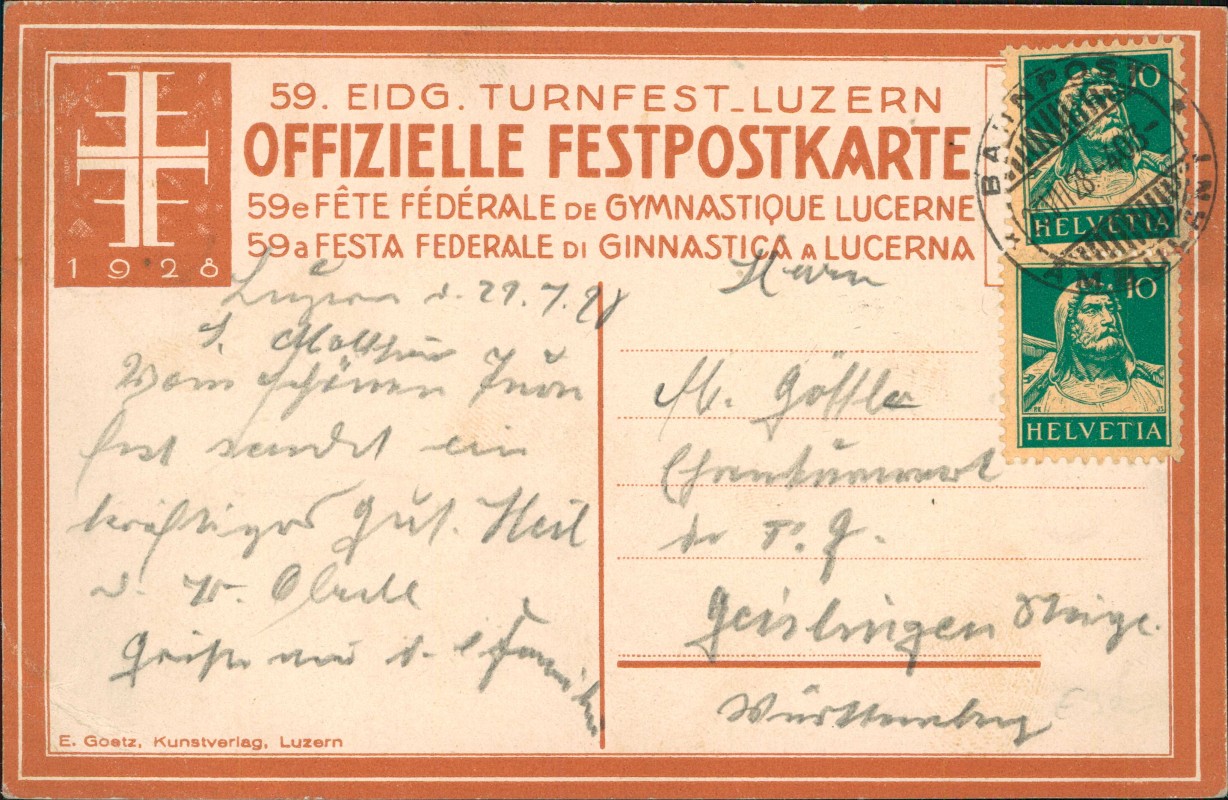 59. EIDG. TURNFEST_LUZERN
OFFIZIELLE FESTPOSTKARTE
59e FÊTE FÉDÉRALE DE GYMNASTIQUE LUCERNE
59a FESTA FEDERALE DI GINNASTICA A LUCERNA
1928
10
HELVETIA
10
HELVETIA
BAHNPOST
AMBULANT
Luzern d. 29.7.28
Vom schönen Turn
fest sendet ein
kräftiges Gut Heil
Herrn
M. Gößler
Ehrenturnwart
der T. G.
Geislingen Steige.
Württemberg
E. Goetz, Kunstverlag, Luzern